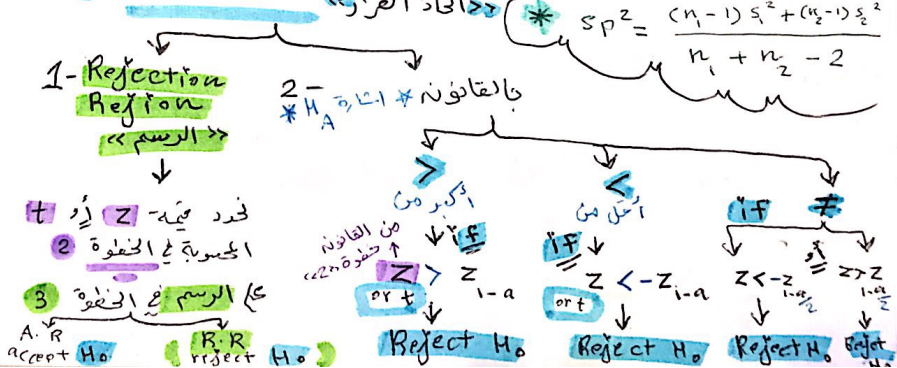 «اتخاذ القرار»
* Sp² = (n₁-1) s₁² + (n₂-1) s₂² / n₁ + n₂ - 2
1- Rejection
Rejion
«الرسم»
نحدد قيمة Z أو t
المحسوبة في الخطوة 2
على الرسم في الخطوة 3
A.R
accept H₀
R.R
reject H₀
2- بالقانون * اشارة H_A *
>
أكبر من
if
من القانون
خطوة «2»
Z > Z₁₋ₐ
or t
Reject H₀
<
أقل من
if
Z < -Z₁₋ₐ
or t
Reject H₀
if ≠
Z < -Z₁₋ₐ/₂
أو
Z > Z₁₋ₐ/₂
Reject H₀
Rejet H₀